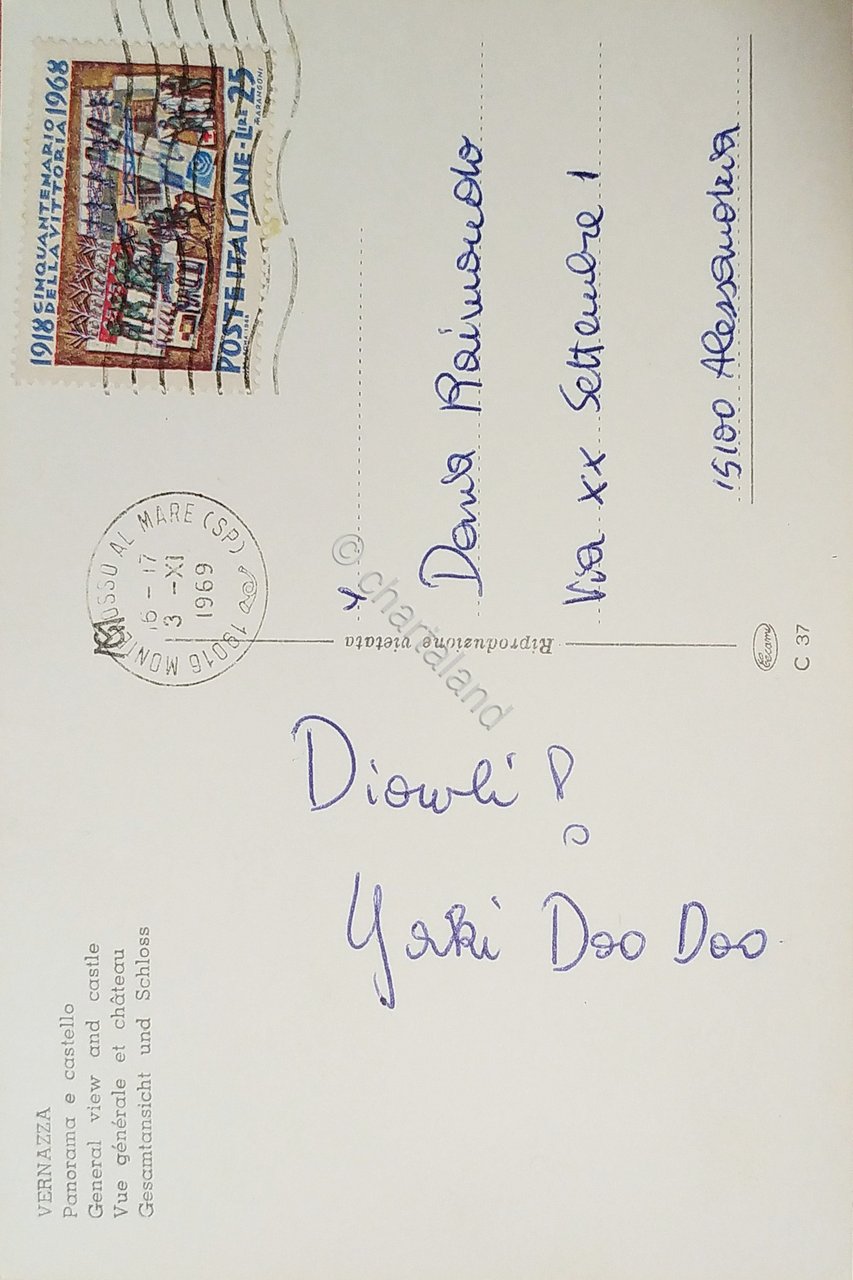 VERNAZZA
Panorama e castello
General view and castle
Vue générale et château
Gesamtansicht und Schloss
Yaki Doo Doo
Riproduzione vietata
C 37
19016 MONTEROSSO AL MARE (SP)
16-17
3-XI
1969
1918 CINQUANTENARIO 1968
DELLA VITTORIA
POSTE ITALIANE - LIRE 25
MARANGONI
Raimondo
Via XX Settembre 1
15100 Alessandria
© chartaland